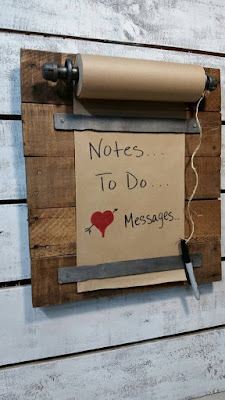 Notes...
To Do...
Messages..